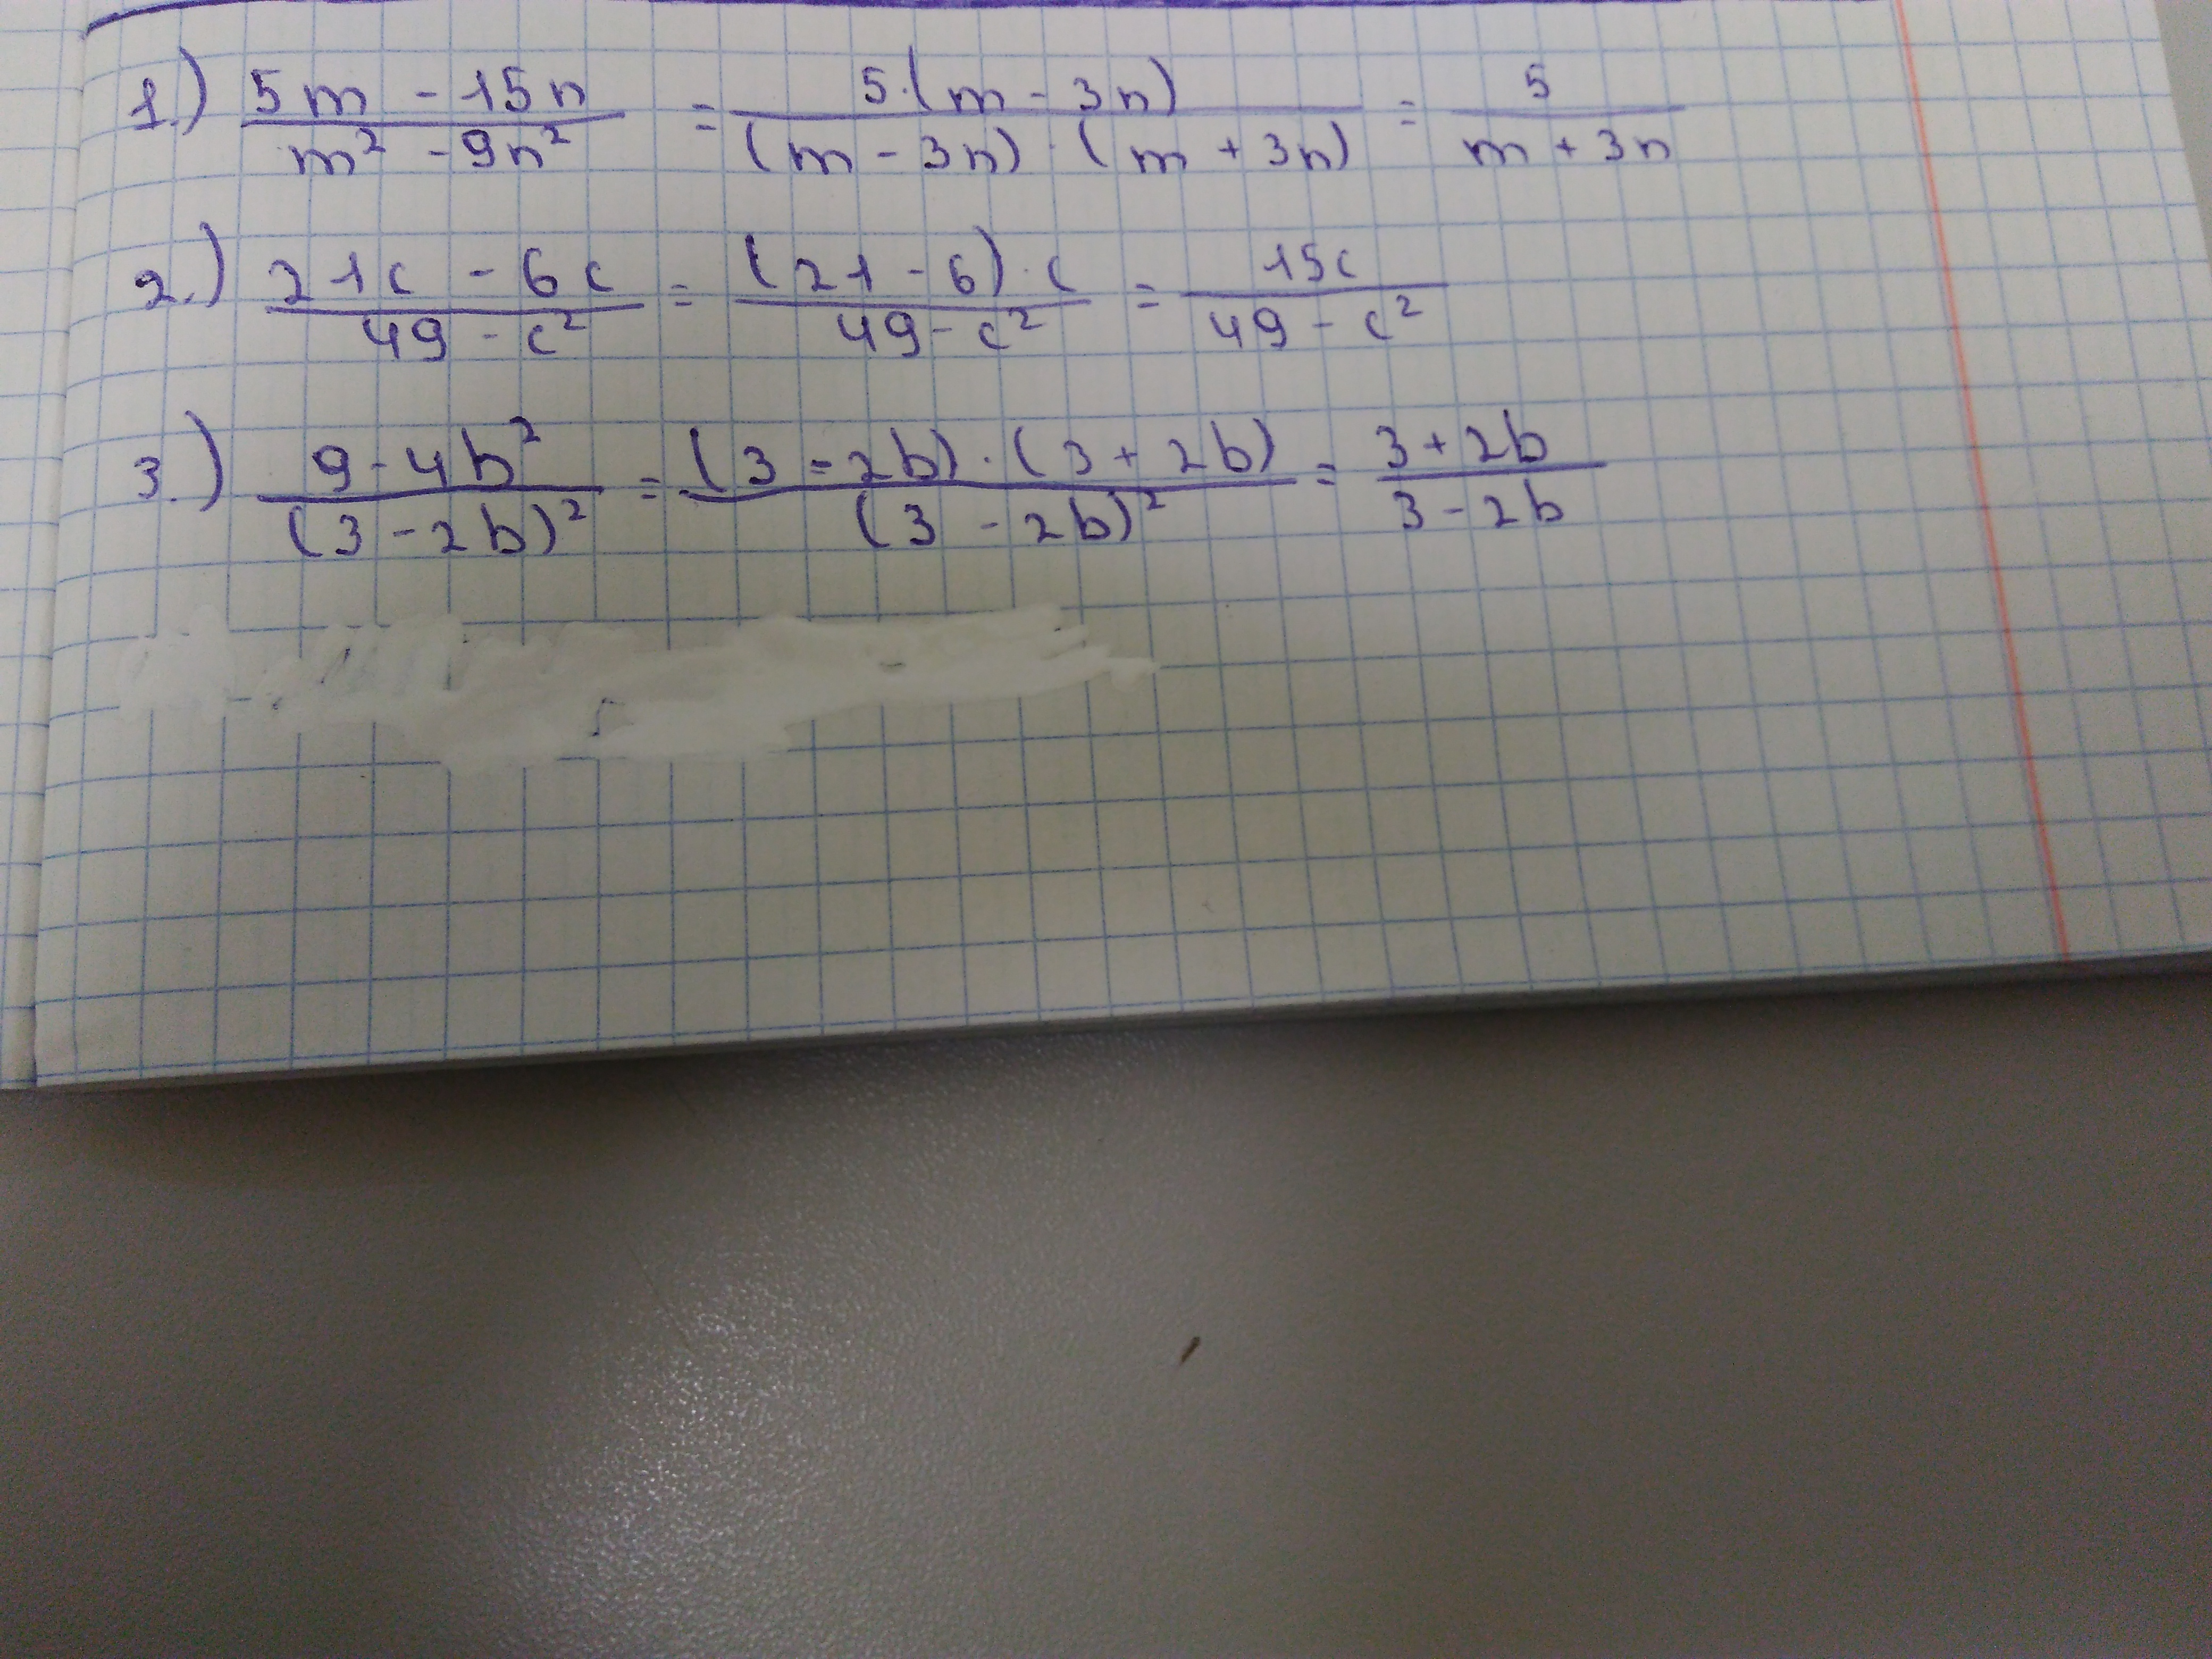 1.) (5m - 15n)/(m² - 9n²) = (5·(m - 3n))/((m - 3n)·(m + 3n)) = 5/(m + 3n)
2.) (21c - 6c)/(49 - c²) = ((21 - 6)·c)/(49 - c²) = 15c/(49 - c²)
3.) (9 - 4b²)/((3 - 2b)²) = ((3 - 2b)·(3 + 2b))/((3 - 2b)²) = (3 + 2b)/(3 - 2b)